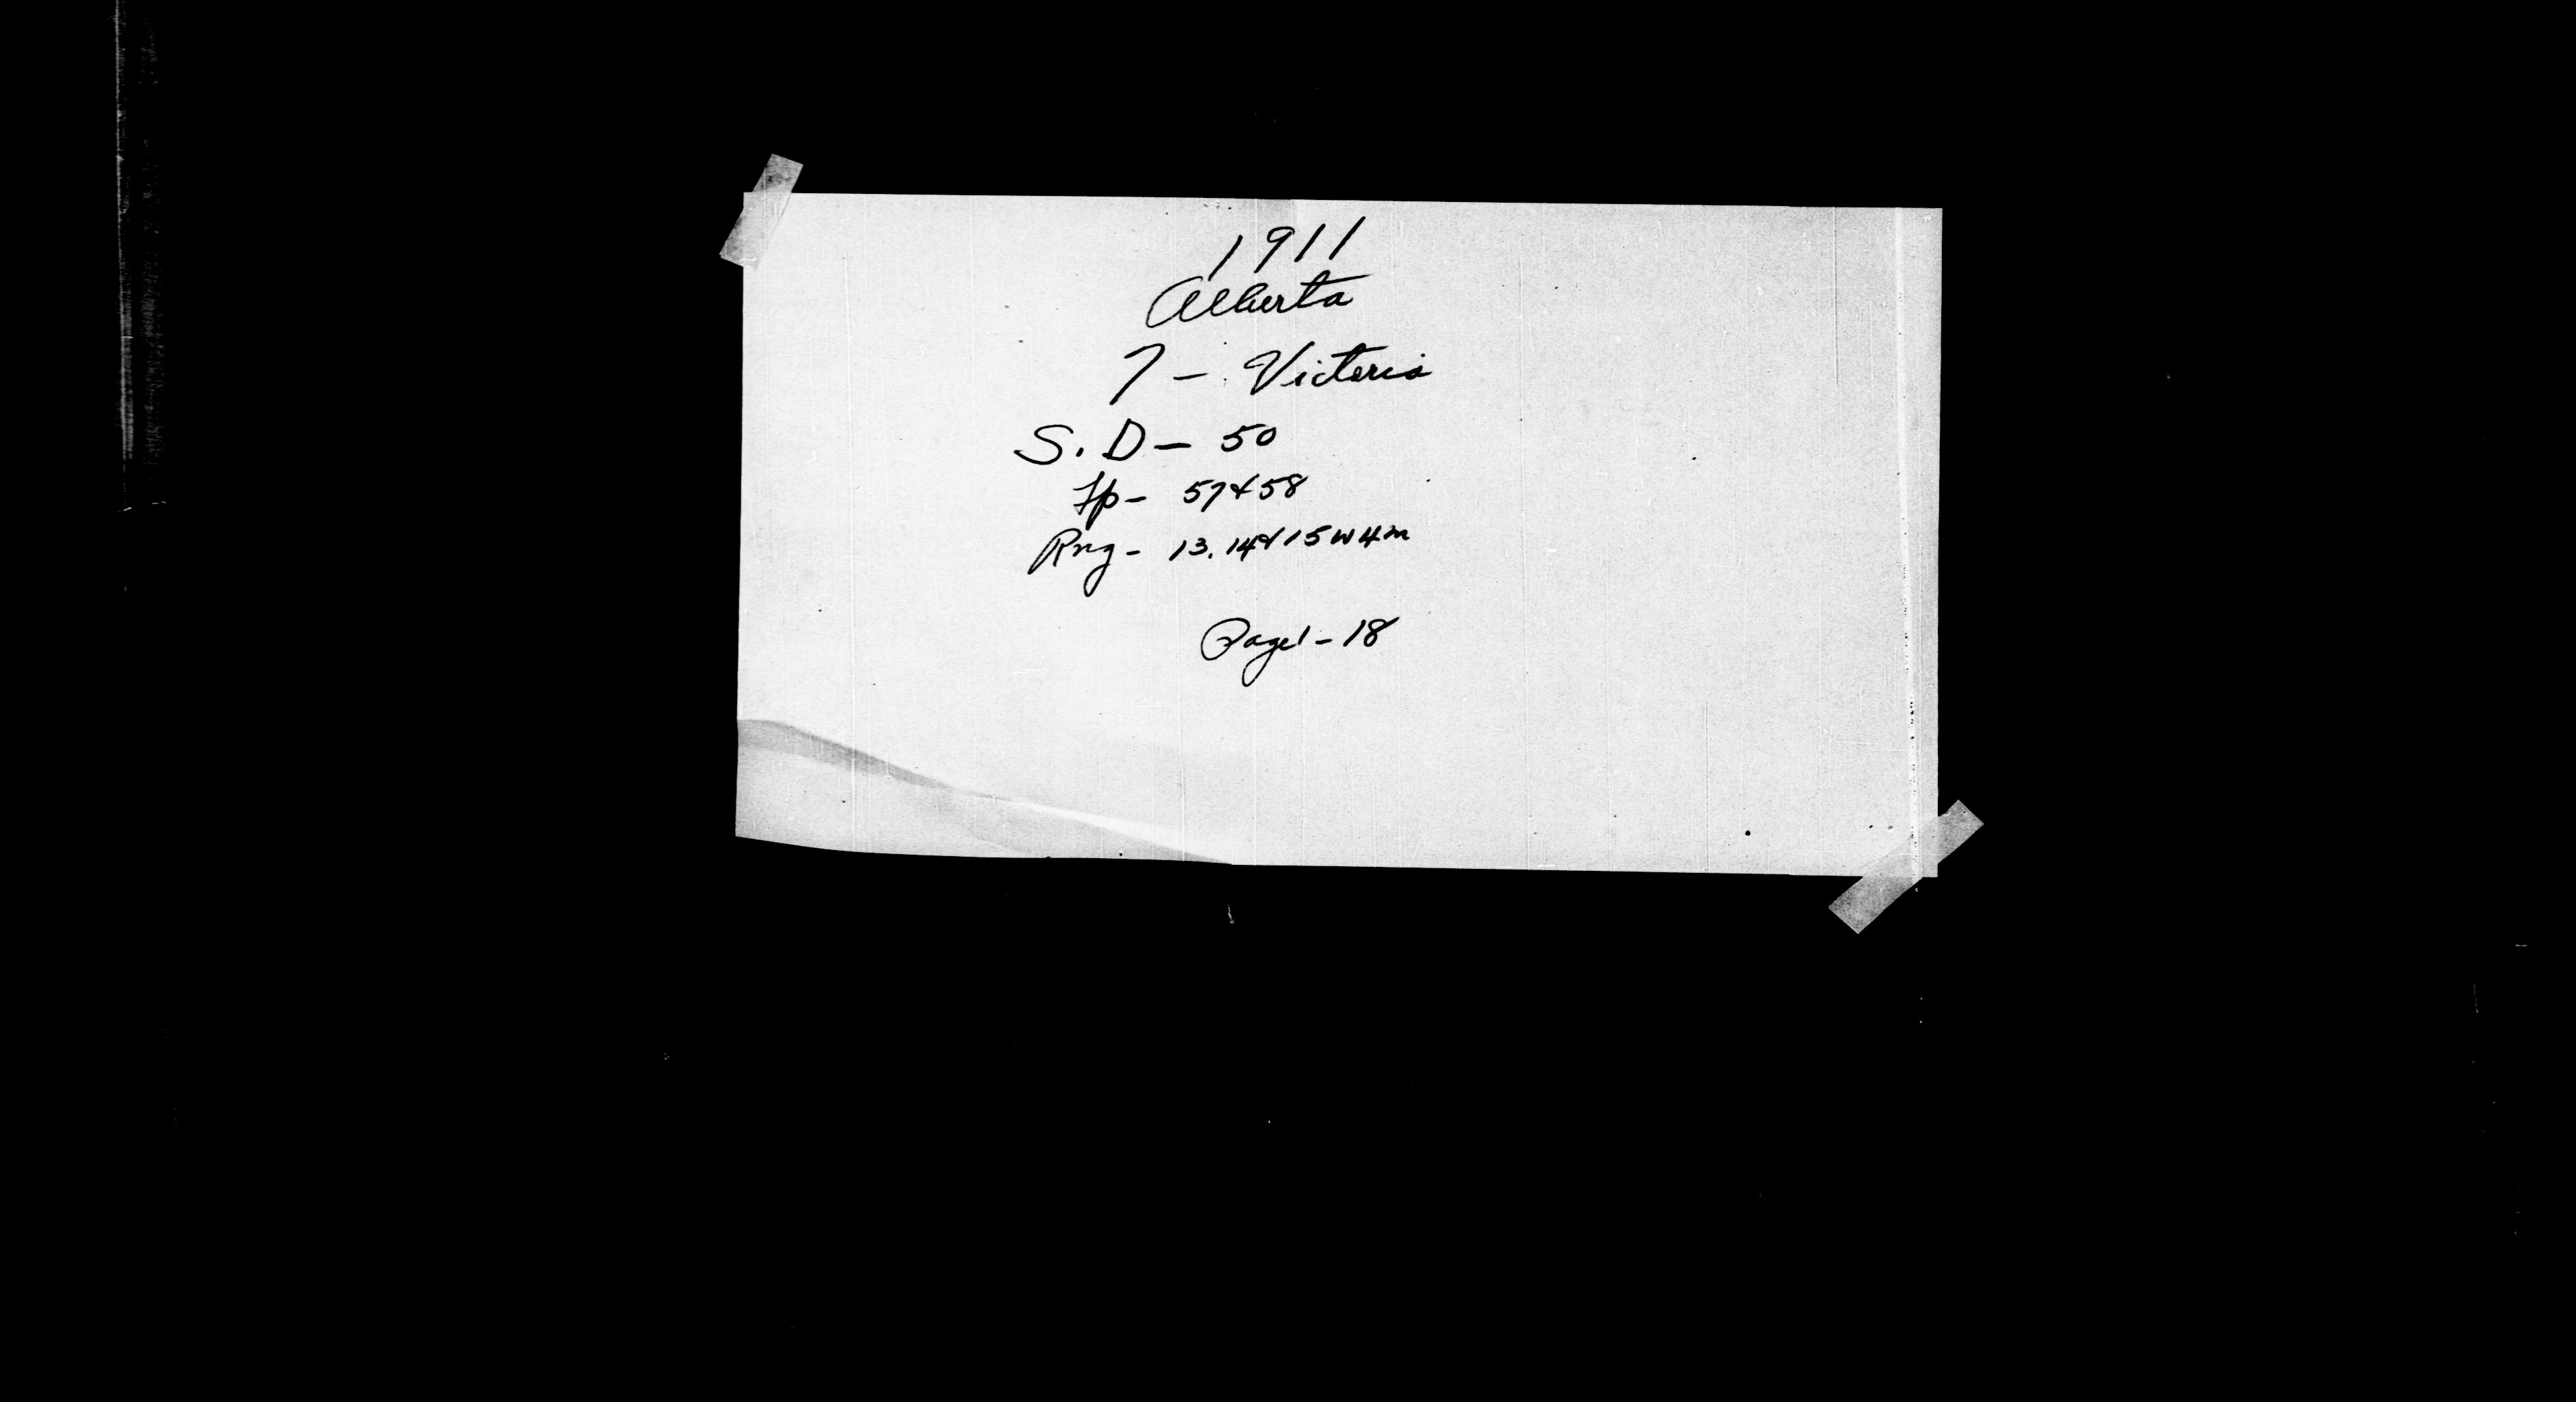 1911
Alberta
7 - Victoria
S.D - 50
Tp - 57 & 58
Rng - 13.14 & 15 W 4 m
Page 1 - 18